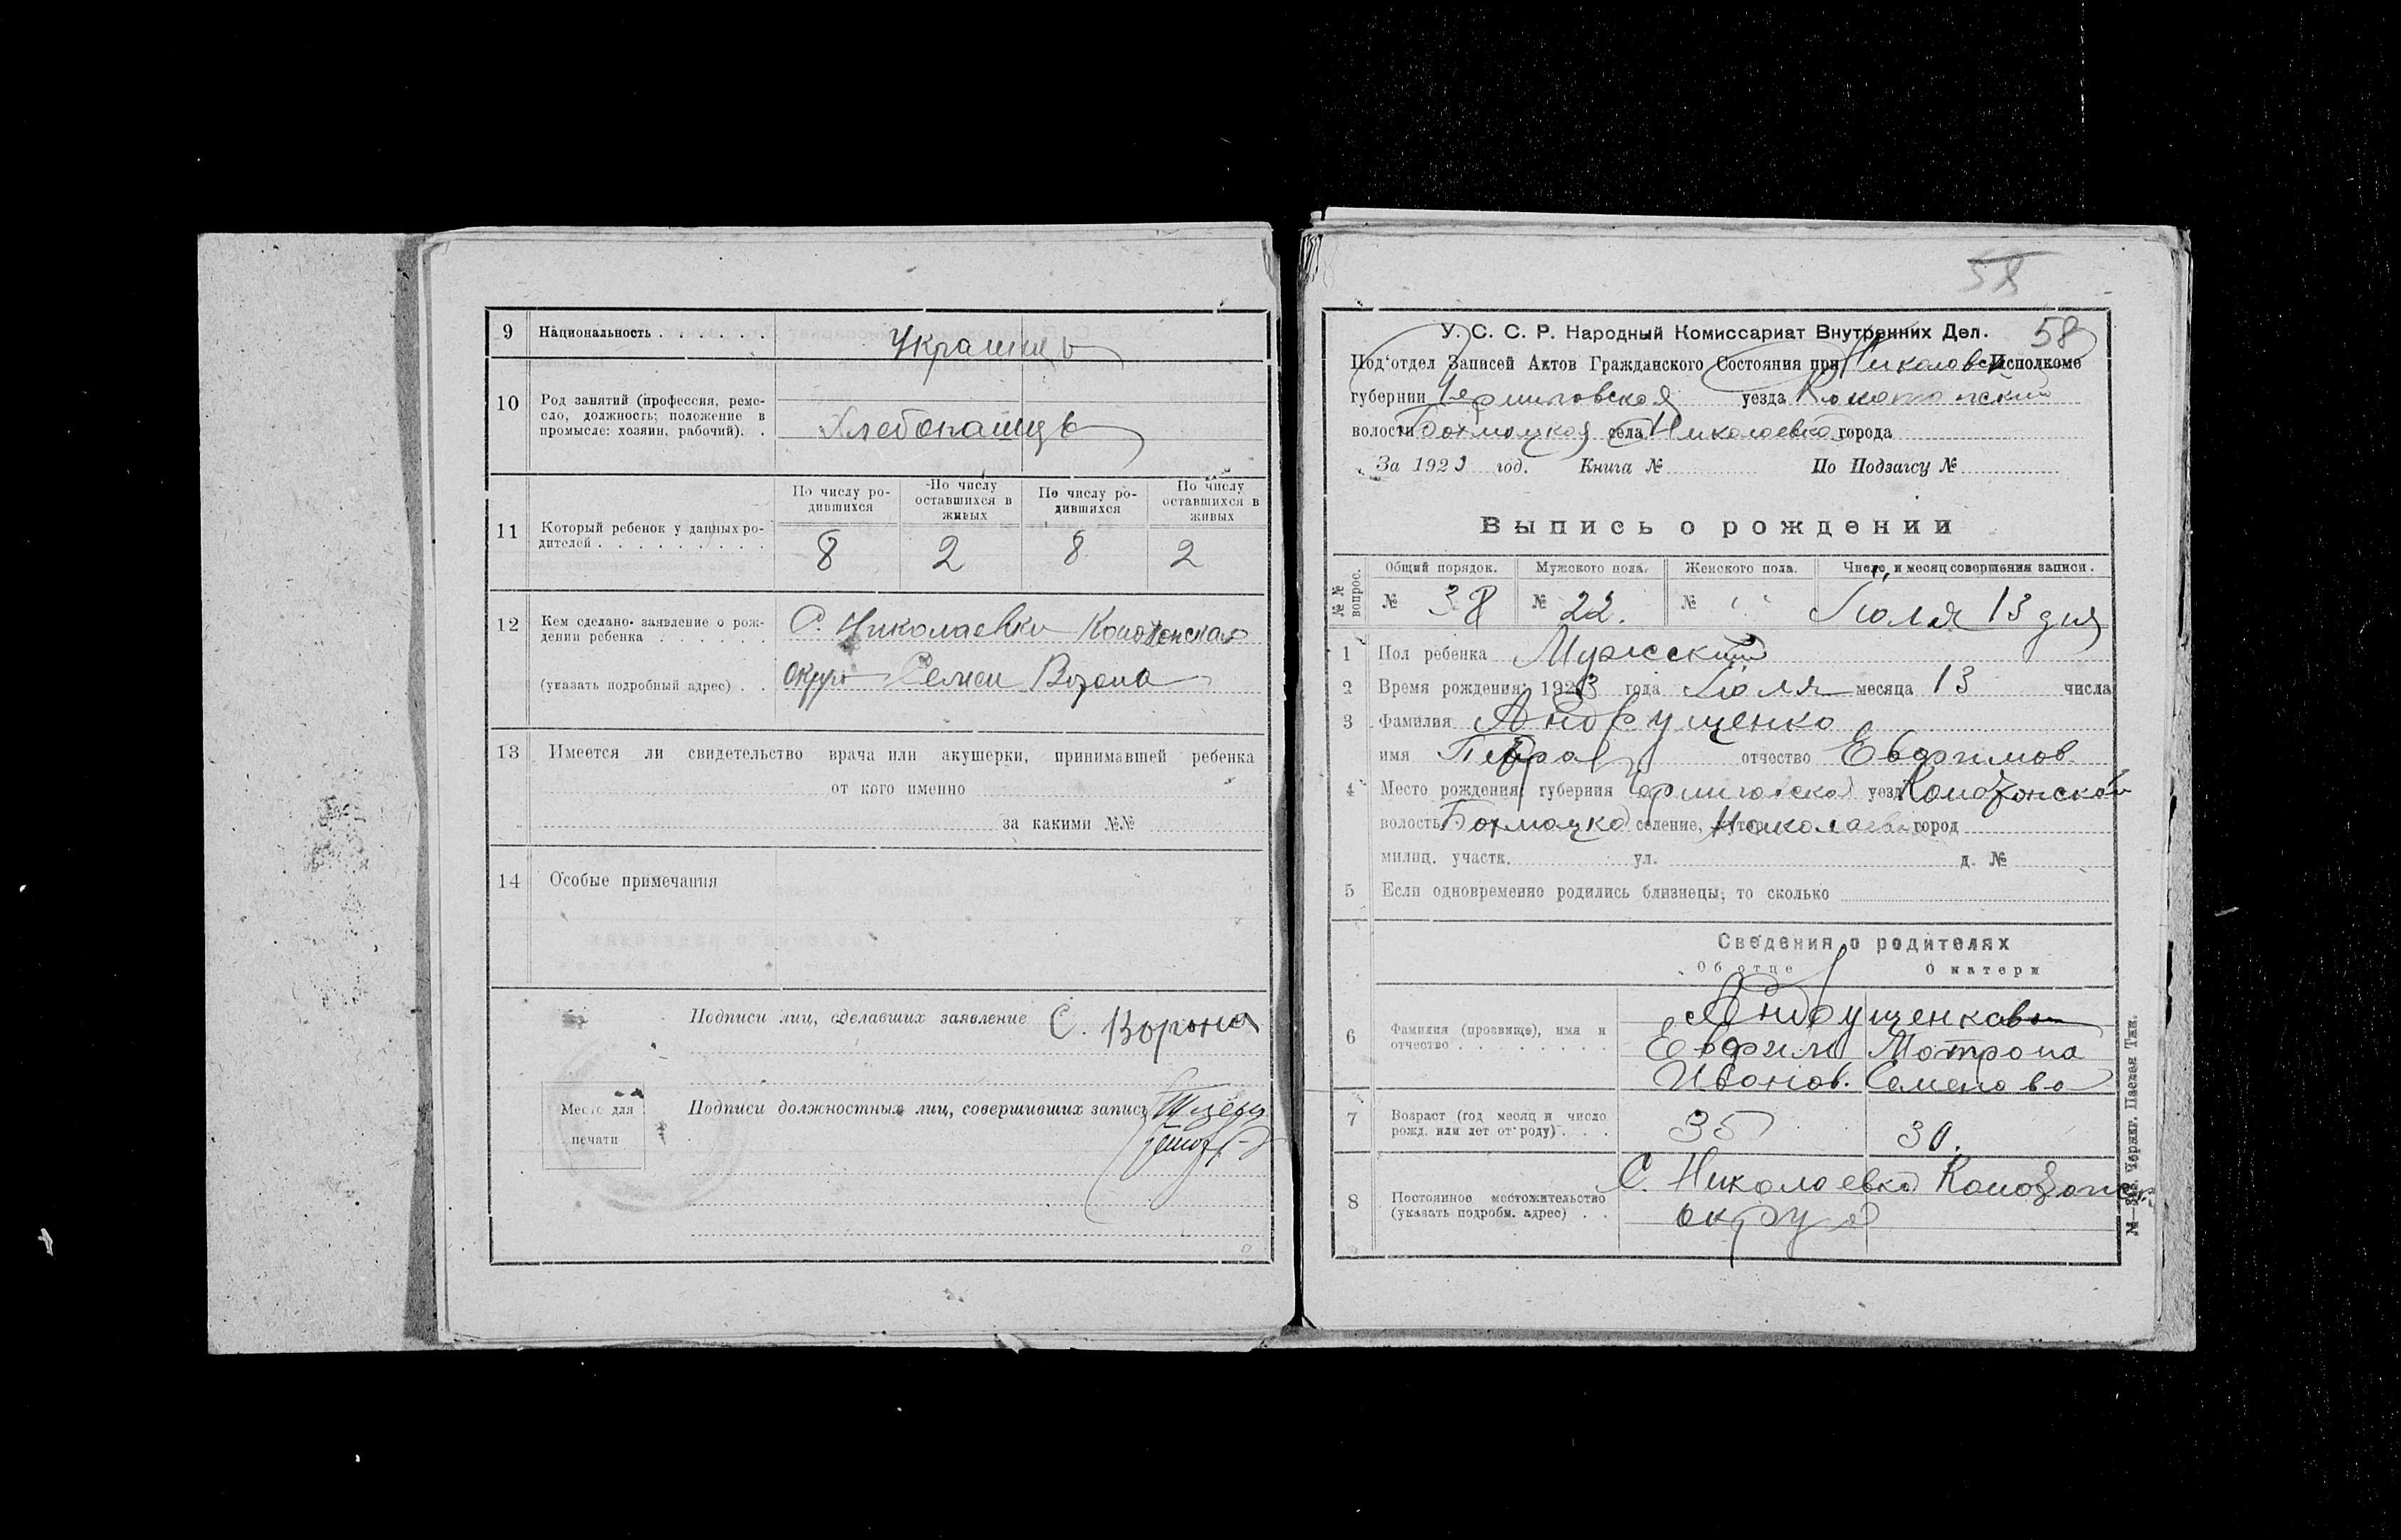 9 Национальность . . . . . .
Украинцъ
10 Род занятий (профессия, реме-
сло, должность; положение в
промысле: хозяин, рабочий). .
Хлебопашцъ
11 Который ребенок у данных ро-
дителей . . . . . . . . .
По числу ро-
дившихся
По числу
оставшихся в
живых
По числу ро-
дившихся
По числу
оставшихся в
живых
8 2 8 2
12 Кем сделано заявление о рож-
дении ребенка . . . . . .
(указать подробный адрес) . .
С. Николаевки Конотопская
округ Семен Ворона
13 Имеется ли свидетельство врача или акушерки, принимавшей ребенка
от кого именно
за какими №№
14 Особые примечания
Подписи лиц, сделавших заявление С. Ворона
Подписи должностных лиц, совершивших запись
Место для
печати
58
58
У. С. С. Р. Народный Комиссариат Внутренних Дел.
Под'отдел Записей Актов Гражданского Состояния при Николаевск Исполкоме
губернии Черниговская уезда Конотопский
волости Бахмацкая села Николаевка города
За 1923 год. Книга № По Подзагсу №
Выпись о рождении
№№ вопрос.
Общий порядок. Мужского пола. Женского пола. Число и месяц совершения записи.
№ 38 № 22. № " Июля 13 дня
1 Пол ребенка Мужский
2 Время рождения: 1923 года Июля месяца 13 числа
3 Фамилия Андрущенко
имя Петра отчество Евфимов.
4 Место рождения: губерния Черниговская уезд Конотопской
волость Бахмацка селение, Николаевка город
милиц. участк. ул. д. №
5 Если одновременно родились близнецы, то сколько
Сведения о родителях
Об отце О матери
6 Фамилия (прозвище), имя и
отчество . . . . . . . .
Андрущенкова
Евфим Мотрона
Иванов. Семенова
7 Возраст (год месяц и число
рожд. или лет от роду) . . .
35 30.
8 Постоянное местожительство
(указать подробн. адрес) . .
С. Николаевка Конотопск
округа
Черниг. Паевая Тип.